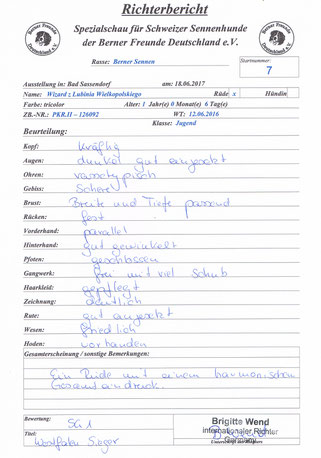 Richterbericht
Spezialschau für Schweizer Sennenhunde
der Berner Freunde Deutschland e.V.
Rasse: Berner Sennen
Startnummer:
7
Ausstellung in: Bad Sassendorf am: 18.06.2017
Name: Wizard z Lubinia Wielkopolskiego Rüde x Hündin
Farbe: tricolor Alter: 1 Jahr(e) 0 Monat(e) 6 Tag(e)
ZB.-NR.: PKR.II – 126092 WT: 12.06.2016
Klasse: Jugend
Beurteilung:
Kopf: kräftig
Augen: dunkel gut eingesetzt
Ohren: rassetypisch
Gebiss: Schere
Brust: Breite und Tiefe passend
Rücken: fest
Vorderhand: parallel
Hinterhand: gut gewinkelt
Pfoten: geschlossen
Gangwerk: frei mit viel Schub
Haarkleid: gepflegt
Zeichnung: deutlich
Rute: gut angesetzt
Wesen: friedlich
Hoden: vorhanden
Gesamterscheinung / sonstige Bemerkungen:
Ein Rüde mit einem harmonischen
Gesamteindruck.
Bewertung: SG 1
Brigitte Wend
internationaler Richter
Titel: Westfalen Sieger
Unterschrift des Richters